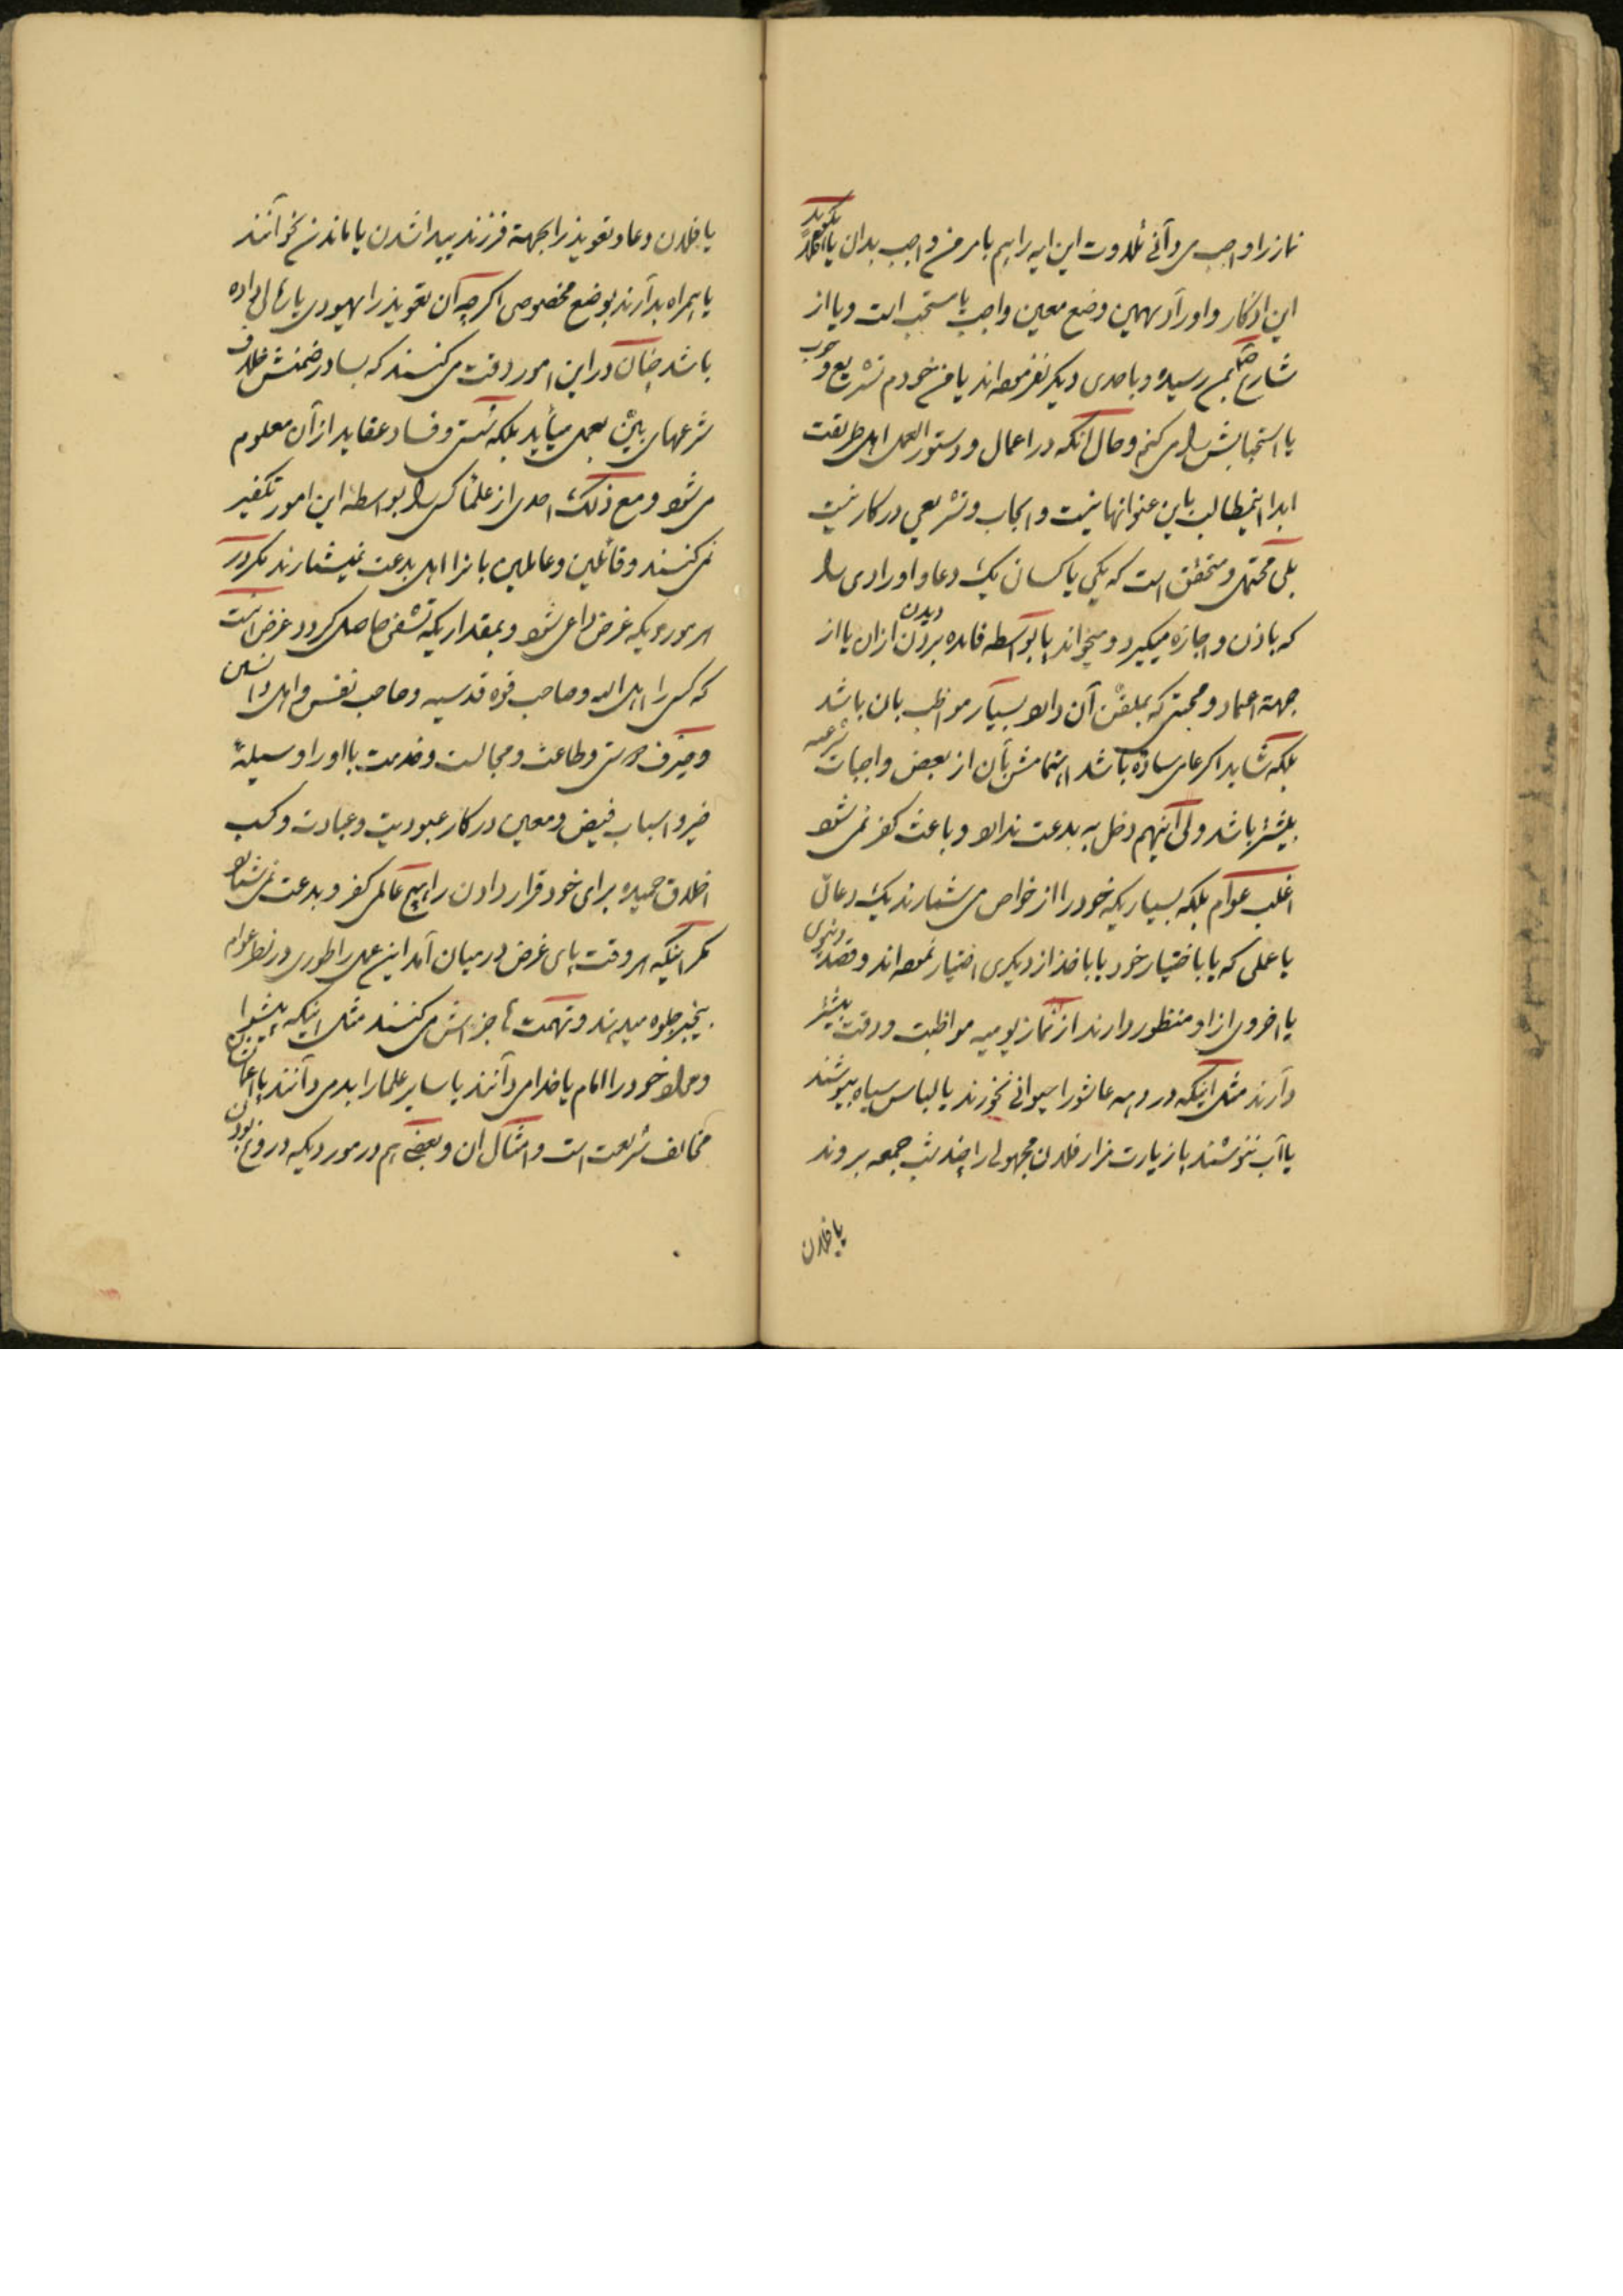 نماز را واجب می دانی تلاوت این ایه را هم بامر من واجب بدان یا اقلاً بگوید
این اذکار و اوراد بهمین وضع معین واجب یا مستحب است و یا از
شارع بمن رسیده و باحدی دیگر نفرموده اند یا من خودم تشریع وجوب
یا استحبابش را می کنم و حال آنکه در اعمال و دستور العمل اهل طریقت
ابدا اینمطالب باین عنوانها نیست و ایجاب و تشریعی در کار نیست
بلی محتمل و متحقق است که یکی یا کسان یک دعا و اورادی را
که باذن و اجازه میگیرد و میخواند یا بواسطه فایده بردن دیدن ازان یا از
جهة اعتماد و محبتی که بملقن آن دارد بسیار مواظب بان باشد
بلکه شاید اکر عامی ساده باشد اهتمامش بآن از بعض واجبات شرعیه
بیشتر باشد ولی اینهم دخل به بدعت ندارد و باعث کفر نمی شود
اغلب عوام بلکه بسیاریکه خود را از خواص می شمارند یک دعائی
یا عملی که یا باختیار خود یا باخذ از دیکری اختیار نموده اند و قصد دنیوی
یا اخروی از او منظور دارند از نماز یومیه مواظبت و دقت بیشتر
دارند مثل اینکه در دهه عاشورا حیوانی نخورند یا لباس سیاه بپوشند
یا آب ننوشند یا زیارت مزار فلان مجهولی را چند شب جمعه بروند
یا فلان
یا فلان دعا و تعویذ را بجهة فرزند پیدا شدن یا ماندن بخوانند
یا همراه بدارند بوضع مخصوصی اکرچه آن تعویذ را یهودی یا رمالی داده
باشد چنان در این امور دقت می کنند که بسا در ضمنش خلاف
شرعهای بیّن بعمل میآید بلکه فسق و فساد عقاید از آن معلوم
می شود و مع ذلک احدی از علما کسی را بواسطه این امور تکفیر
نمی کنند و قائلین و عاملین بانرا اهل بدعت نمیشمارند مکر در
هر موردیکه غرض داعی شود و بمقداریکه تشفی حاصل کردد غرض است
که کسی را اهل الله و صاحب قوه قدسیه و صاحب نفس و اهل دانستن
و صرف دوستی و طاعت و مجالست و خدمت با او را وسیلهٔ
خیر و اسباب فیض و معین در کار عبودیت و عبادت و کسب
اخلاق حمیده برای خود قرار دادن را هیچ عالمی کفر و بدعت نمی شمارد
مکر اینکه هر وقت پای غرض در میان آمد این عمل را طوری در نظر عوام
بیخبر جلوه میدهند و تهمت ها جزء اش می کنند مثل اینکه پیشوا
و مولا خود را امام یا خدا می دانند یا سایر علما را بد می دانند یا اعمالشان
مخالف شریعت است و امثال ان و بعضی هم در موردیکه دروغ بودن